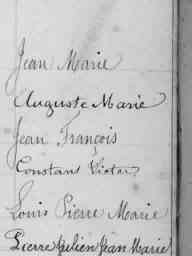 Jean Marie
Auguste Marie
Jean François
Constant Victor
Louis Pierre Marie
Pierre Julien Jean Marie